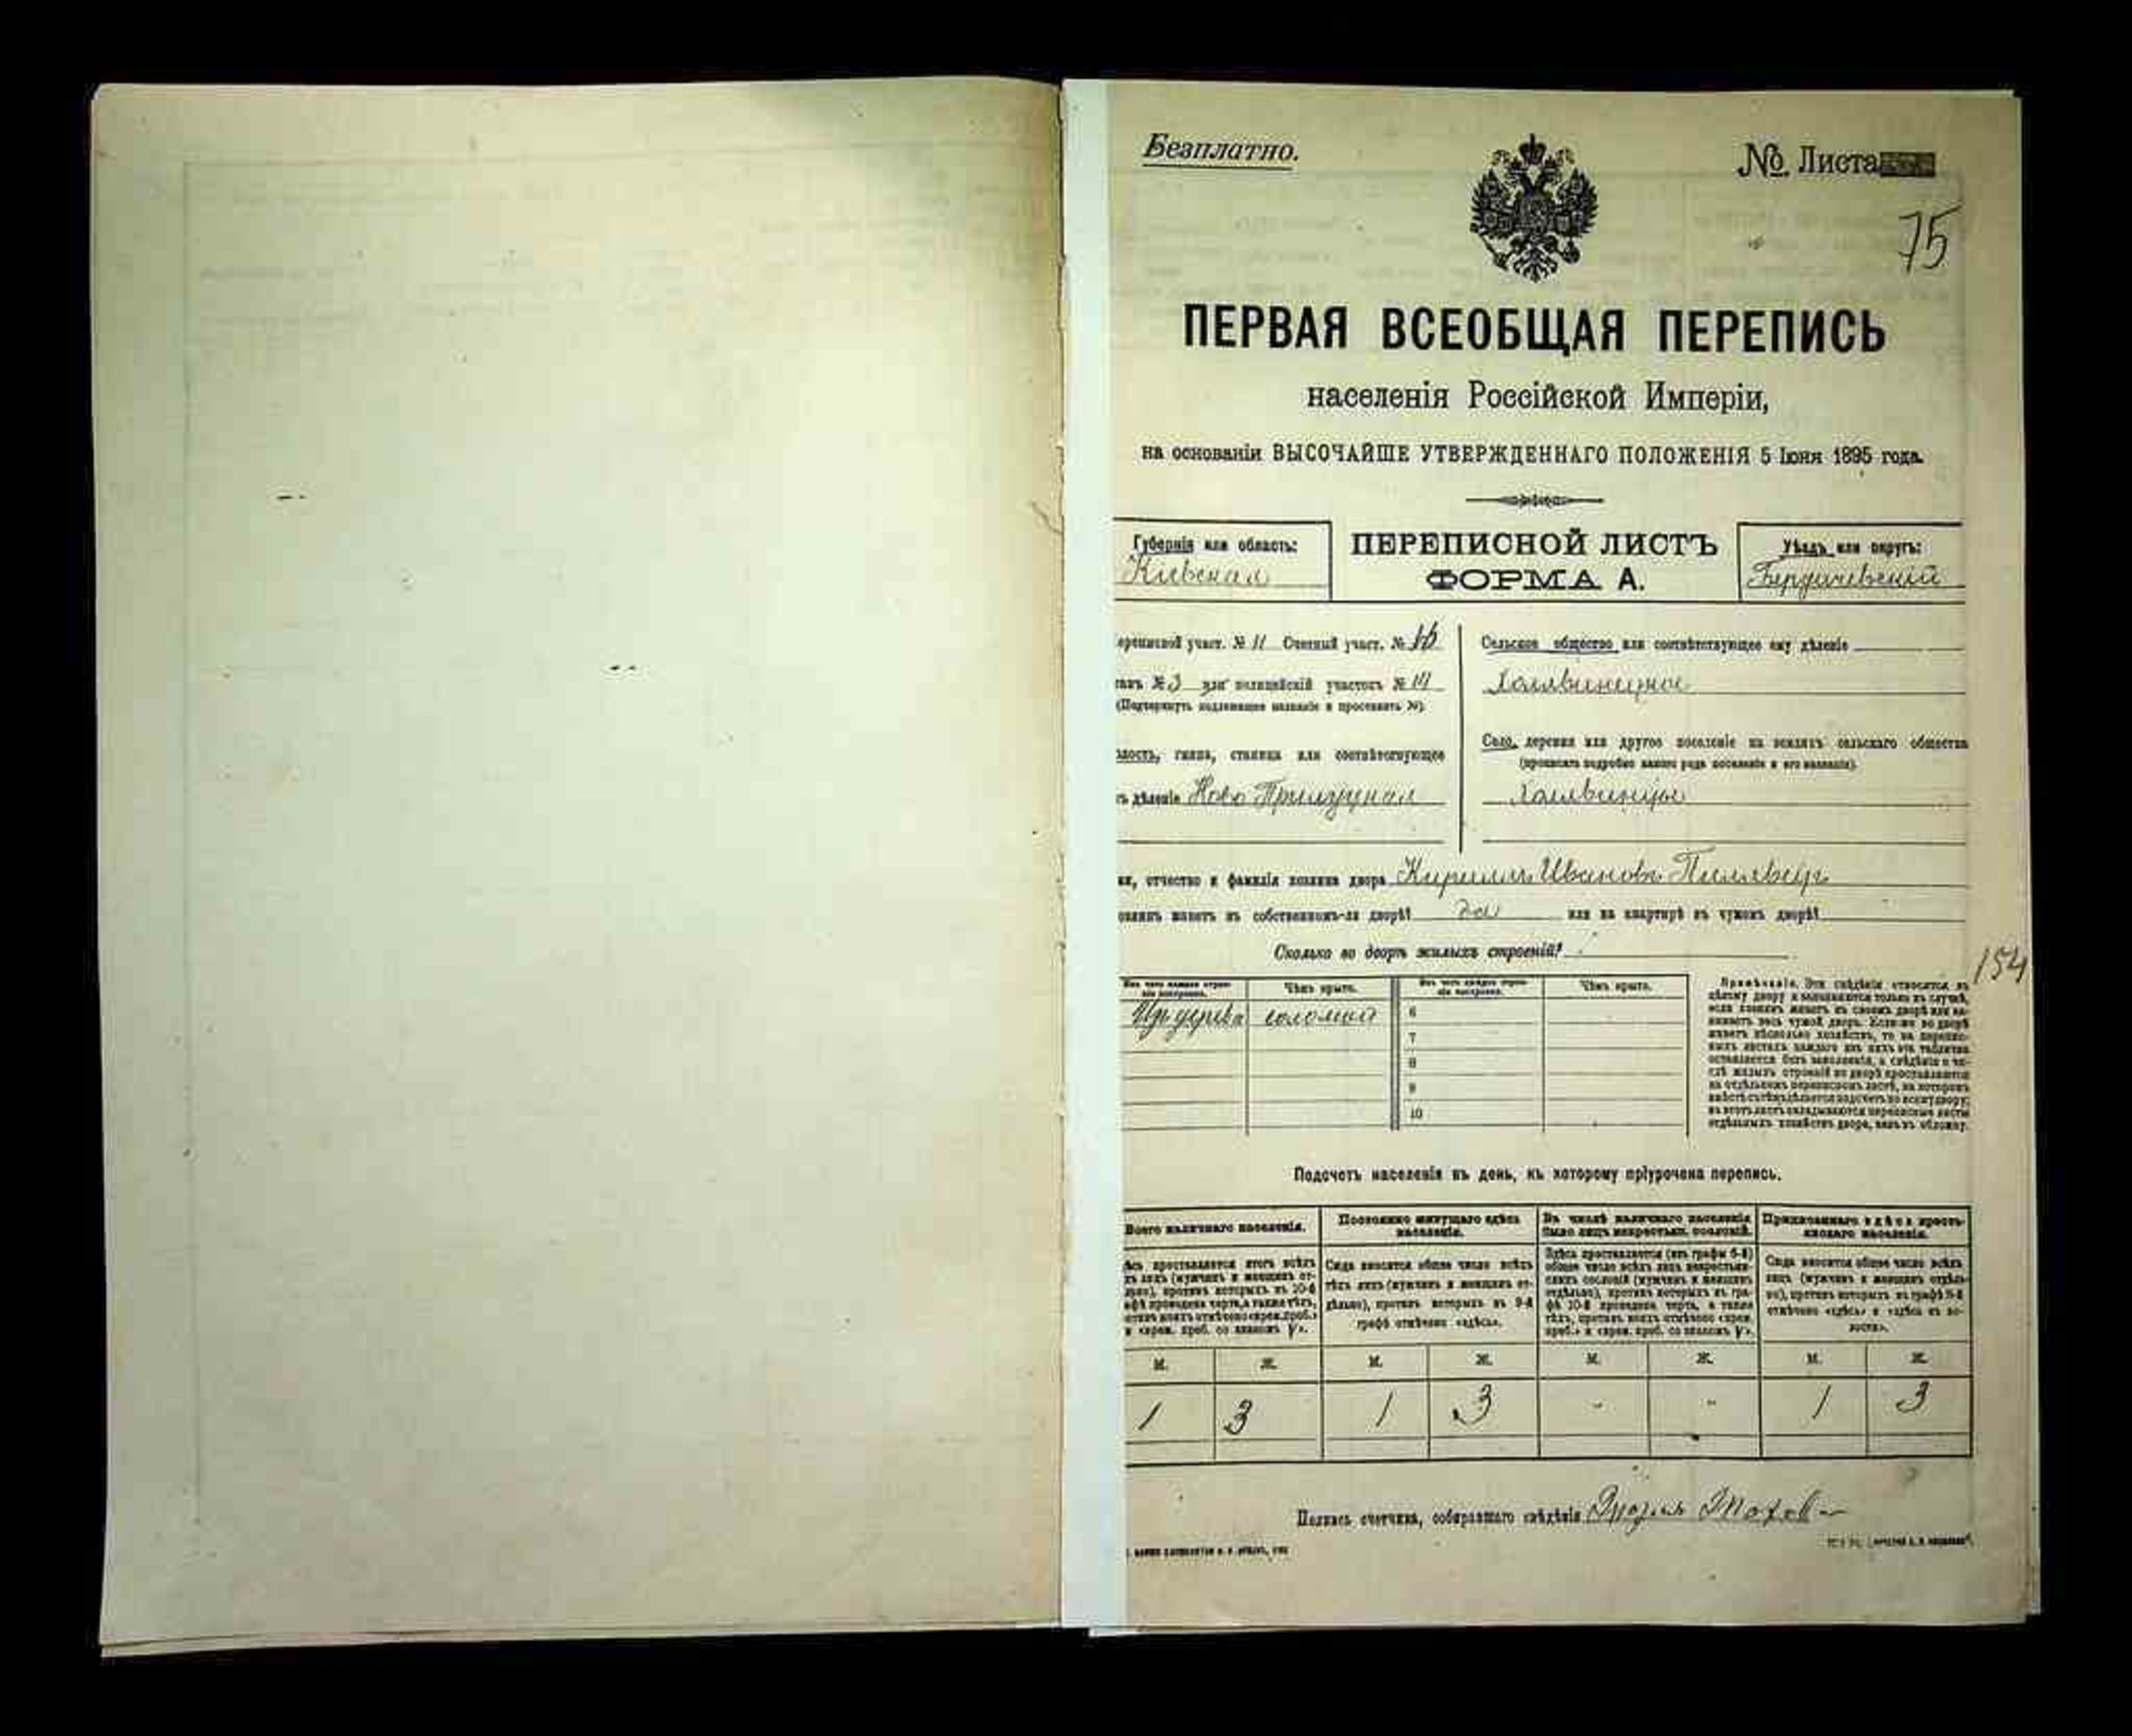 Безплатно.
№ Листа
75
ПЕРВАЯ ВСЕОБЩАЯ ПЕРЕПИСЬ
населенія Россійской Имперіи,
на основаніи ВЫСОЧАЙШЕ УТВЕРЖДЕННАГО ПОЛОЖЕНІЯ 5 Іюня 1895 года.
Губернія или область:
Кіевская
ПЕРЕПИСНОЙ ЛИСТЪ
ФОРМА А.
Уѣздъ или округъ:
Бердичевскій
ереписной участ. № 11 Счетный участ. №
танъ № 3 или полицейскій участокъ №
(Подчеркнуть надлежащее названіе и проставить №).
лость, гмина, станица или соотвѣтствующее
ъ дѣленіе Ново
Сельское общество или соотвѣтствующее ему дѣленіе
Село, деревня или другое поселеніе на земляхъ сельскаго общества
(прописать подробно какого рода поселеніе и его названіе).
мя, отчество и фамилія хозяина двора Кирилъ Ивановъ
озяинъ живетъ въ собственномъ-ли дворѣ? да или на квартирѣ въ чужомъ дворѣ?
Сколько во дворѣ жилыхъ строеній?
154
Изъ чего каждое строеніе построено.
Чѣмъ крыто.
Изъ чего каждое строеніе построено.
Чѣмъ крыто.
Изъ дерева соломой 6
7
8
9
10
Примѣчаніе. Эти свѣдѣнія относятся къ
цѣлому двору и заполняются только въ случаѣ,
если хозяинъ живетъ въ своемъ дворѣ или за-
нимаетъ весь чужой дворъ. Если же во дворѣ
живетъ нѣсколько хозяйствъ, то на перепис-
ныхъ листахъ каждаго изъ нихъ эта табличка
оставляется безъ заполненія, а свѣдѣнія о чи-
слѣ жилыхъ строеній во дворѣ проставляются
на отдѣльномъ переписномъ листѣ, на которомъ
вмѣстѣ съ тѣмъ дѣлается подсчетъ по всему двору;
въ этотъ листъ вкладываются переписные листы
отдѣльныхъ хозяйствъ двора, какъ въ обложку.
Подсчетъ населенія въ день, къ которому пріурочена перепись.
Всего наличнаго населенія.
Постоянно живущаго здѣсь
населенія.
Въ числѣ наличнаго населенія
было лицъ некрестьян. сословій.
Приписаннаго здѣсь кресть-
янскаго населенія.
ѣсь проставляется итогъ всѣхъ
хъ лицъ (мужчинъ и женщинъ от-
льно), противъ которыхъ въ 10-й
афѣ проведена черта, а также тѣхъ,
отивъ коихъ отмѣчено «врем. проб.»
и «врем. проб. со знакомъ V».
Сюда вносится общее число всѣхъ
тѣхъ лицъ (мужчинъ и женщинъ от-
дѣльно), противъ которыхъ въ 9-й
графѣ отмѣчено «здѣсь».
Здѣсь проставляется (изъ графы 6-й)
общее число всѣхъ лицъ некрестьян-
скихъ сословій (мужчинъ и женщинъ
отдѣльно), противъ которыхъ въ гра-
фѣ 10-й проведена черта, а также
тѣхъ, противъ коихъ отмѣчено «врем.
проб.» и «врем. проб. со знакомъ V».
Сюда вносится общее число всѣхъ
лицъ (мужчинъ и женщинъ отдѣль-
но), противъ которыхъ въ графѣ 8-й
отмѣчено «здѣсь» и «здѣсь въ во-
лости».
М. Ж. М. Ж. М. Ж. М. Ж.
1 3 1 3 " " 1 3
Подпись счетчика, собиравшаго свѣдѣнія